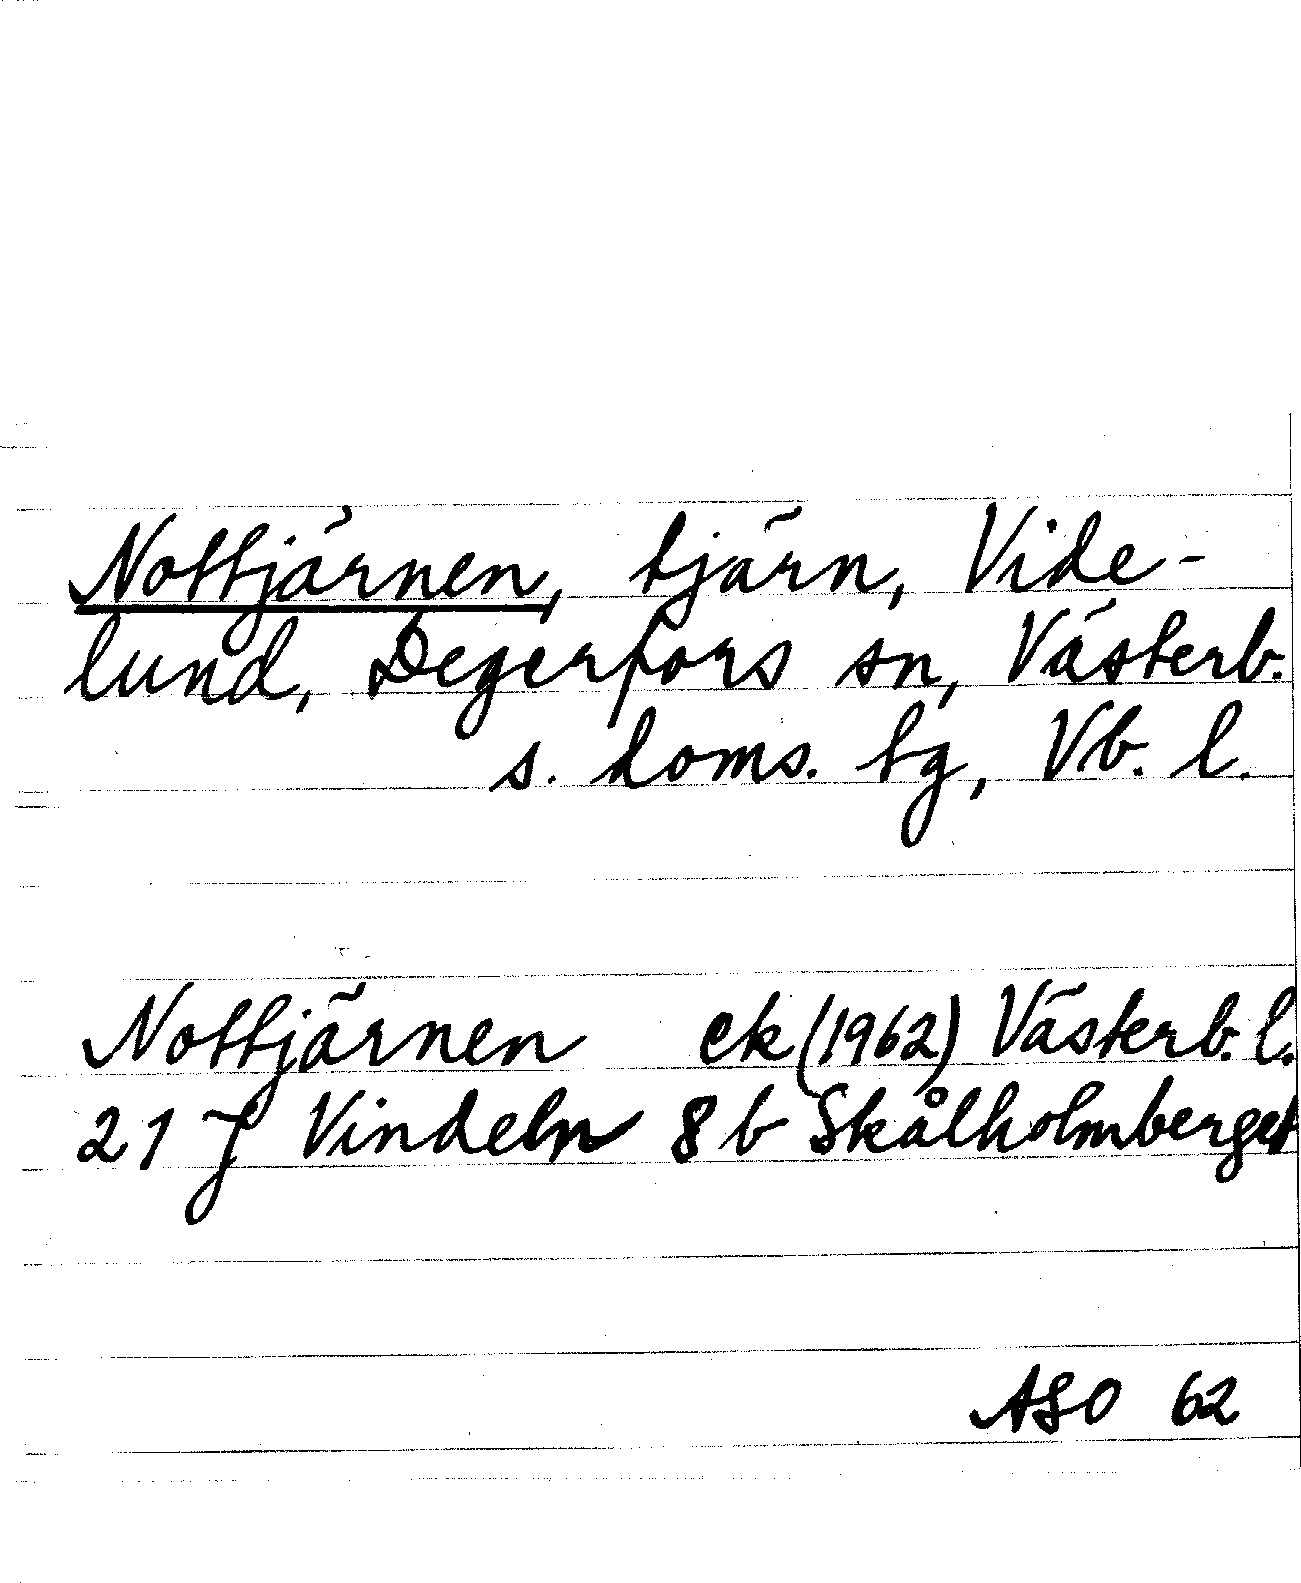 Nottjärnen, tjärn, Vide-
lund, Degerfors sn, Västerb.
s. doms. tg, Vb. l.
Nottjärnen ek (1962) Västerb. l.
21 J Vindeln 8 b Skålholmberget
ASO 62